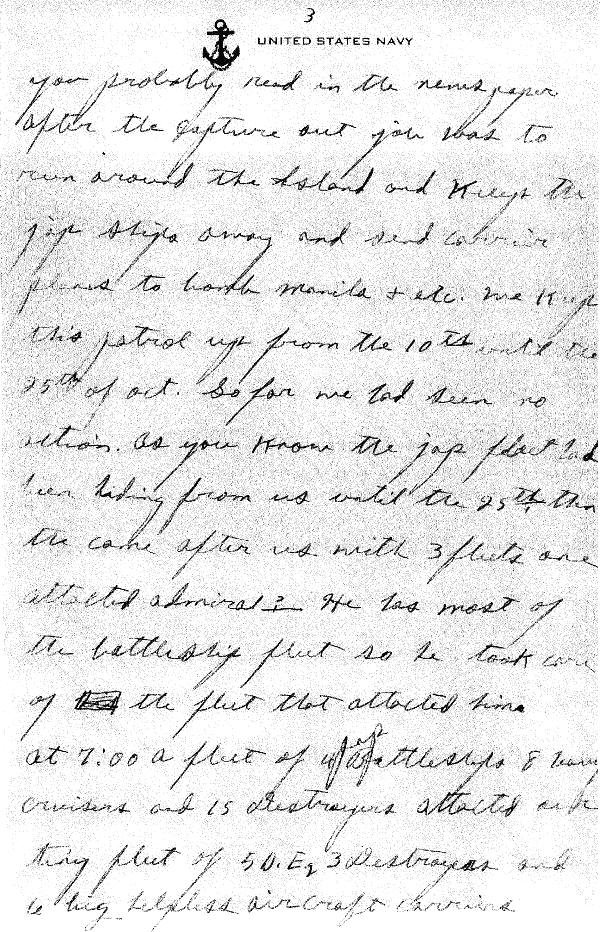 3
UNITED STATES NAVY
you probably read in the newspaper
after the Capture out job was to
run around the Island and Keep the
jap ships away and send carrier
planes to bomb manila + etc. we Kept
this patrol up from the 10th until the
25th of oct. So far we had seen no
action. As you Know the jap fleet had
been hiding from us until the 25th. then
the came after us with 3 fleets one
attacted admiral ? He has most of
the battleship fleet so he took care
of the fleet that attacted him
at 7:00 a fleet of 4 jap Battleships 8 heavy
cruisers and 15 Destroyers attacted our
tiny fleet of 5 D.Es 3 Destroyers and
6 big helpless aircraft carriers